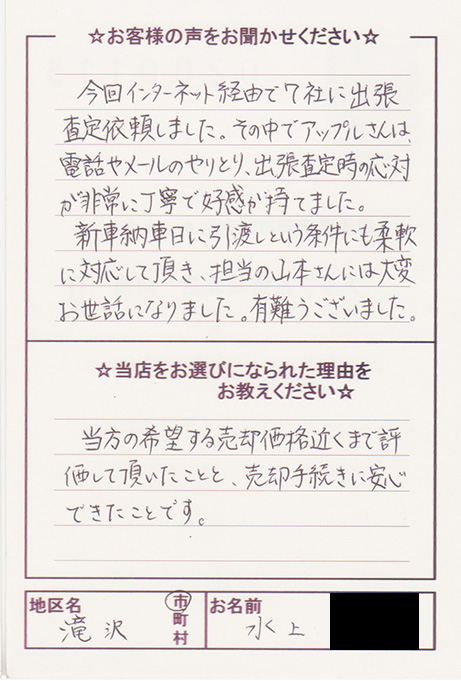 ☆お客様の声をお聞かせください☆
今回インターネット経由で7社に出張
査定依頼しました。その中でアップルさんは、
電話やメールのやりとり、出張査定時の応対
が非常に丁寧で好感が持てました。
新車納車日に引渡しという条件にも柔軟
に対応して頂き、担当の山本さんには大変
お世話になりました。有難うございました。
☆当店をお選びになられた理由を
お教えください☆
当方の希望する売却価格近くまで評
価して頂いたことと、売却手続きに安心
できたことです。
地区名 滝沢 市町村 お名前 水上